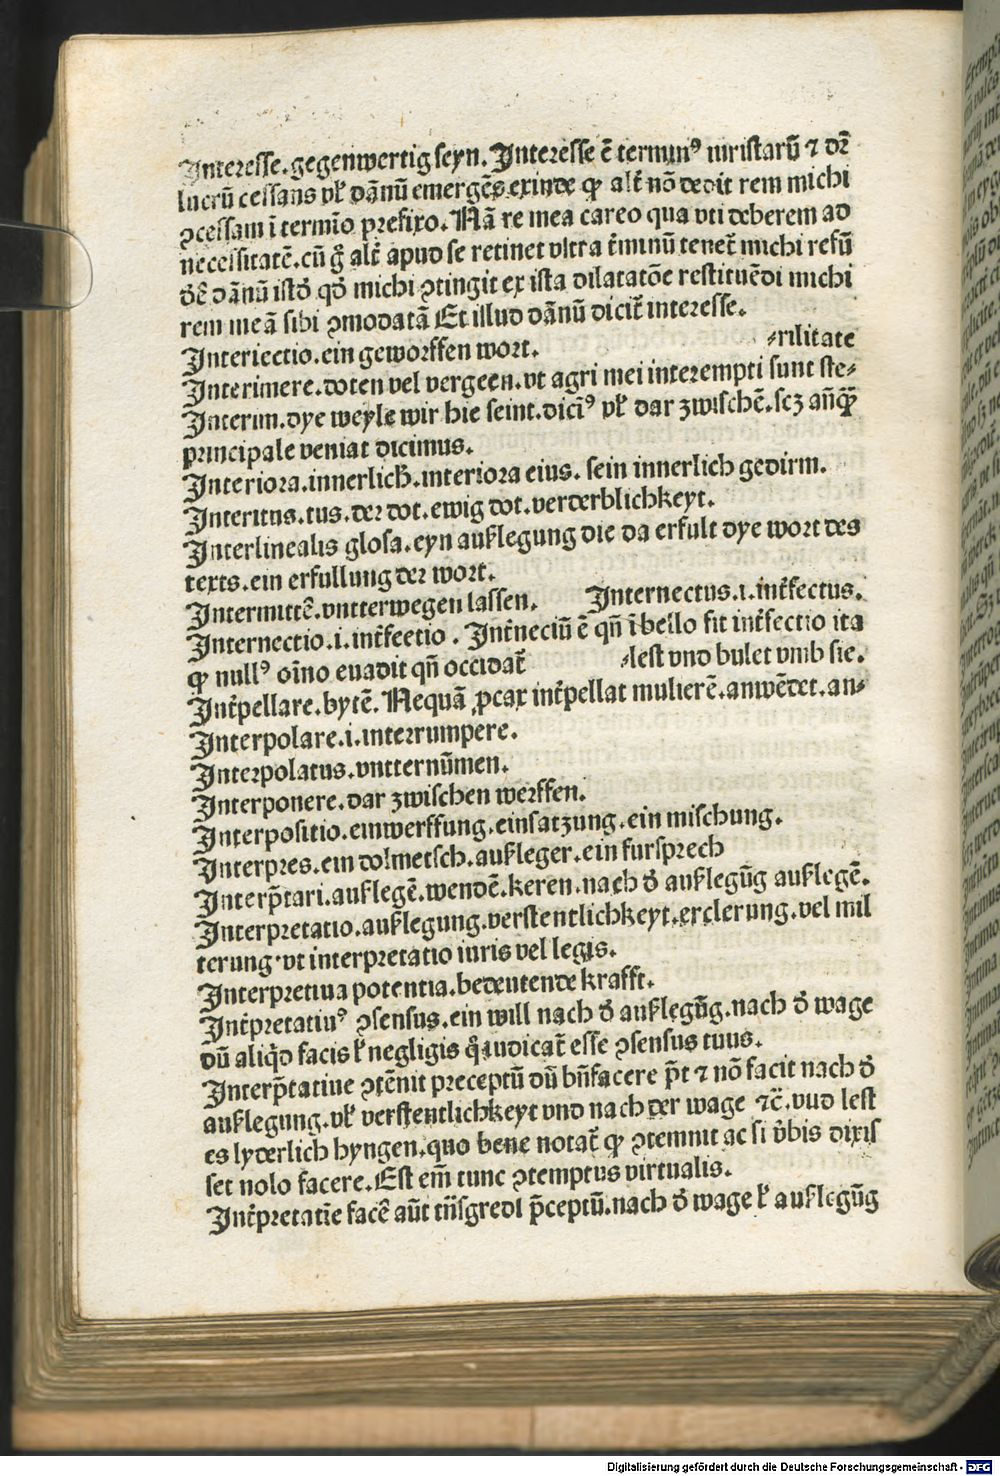 Interesse.gegenwertig seyn.Interesse ē terminꝰ iuristarū ⁊ dr̄
lucrū cessans vl̕ dānū emergēs exinde ꝙ alt̕ nō dedit rem michi
ↄcessam ī termīo prefixo.Nā re mea careo qua vti deberem ad
necessitatē.cū g̊ alt̕ apud se retinet vltra t̕minū tenet̕ michi refū
dē dānū istd̕ qd̕ michi ↄtingit ex ista dilatatōe restituēdi michi
rem meā sibi ↄmodatā Et illud dānū dicit̕ interesse.
Interiectio.ein geworffen wort. ⸗rilitate
Interimere.doten vel vergeen.vt agri mei interempti sunt ste⸗
Interim.dye weyle wir hie seint.diciꝰ vl̕ dar zwischē.scz añꝙ̄
principale veniat dicimus.
Interiora.innerlich.interiora eius. sein innerlich gedirm.
Interitus.tus.der dot.ewig dot.verderblichkeyt.
Interlinealis glosa.eyn außlegung die da erfult dye wort des
texts.ein erfullung der wort.
Intermittē.vntterwegen lassen. Internectus.i.int̕fectus.
Internectio.i.int̕fectio . Int̕neciū ē qñ ī bello fit int̕fectio ita
ꝙ nullꝰ oīno euadit qñ occidat̕ ⸗lest vnd bulet vmb sie.
Int̕pellare.bytē. Nequā ꝓcax int̕pellat mulierē.anwēdet.an⸗
Interpolare.i.interrumpere.
Interpolatus.vntternūmen.
Interponere.dar zwischen werffen.
Interpositio.einwerffung.einsatzung.ein mischung.
Interpres.ein dolmetsch.außleger.ein fursprech
Interp̄tari.außlegē.wendē.keren.nach d̕ außlegūg außlegē.
Interpretatio.außlegung.verstentlichkeyt.erclerung.vel mil
terung.vt interpretatio iuris vel legis.
Interpretiua potentia.bedeutende krafft.
Int̕pretatiuꝰ ↄsensus.ein will nach d̕ außlegūg.nach d̕ wage
dū aliqd̕ facis l̕ negligis q̄ iudicat̕ esse ↄsensus tuus.
Interp̄tatiue ↄtēnit preceptū dū bñfacere p̄t ⁊ nō facit nach d̕
außlegung.vl̕ verstentlichkeyt vnd nach der wage ⁊c̄.vnd lest
es lyderlich hyngen.quo bene notat̕ ꝙ ↄtemnit ac si v̕bis dixis
set nolo facere.Est em̄ tunc ↄtemptus virtualis.
Int̕pretatīe facē aūt trāsgredi p̄ceptū.nach d̕ wage l̕ außlegūg
Digitalisierung gefördert durch die Deutsche Forschungsgemeinschaft - DFG